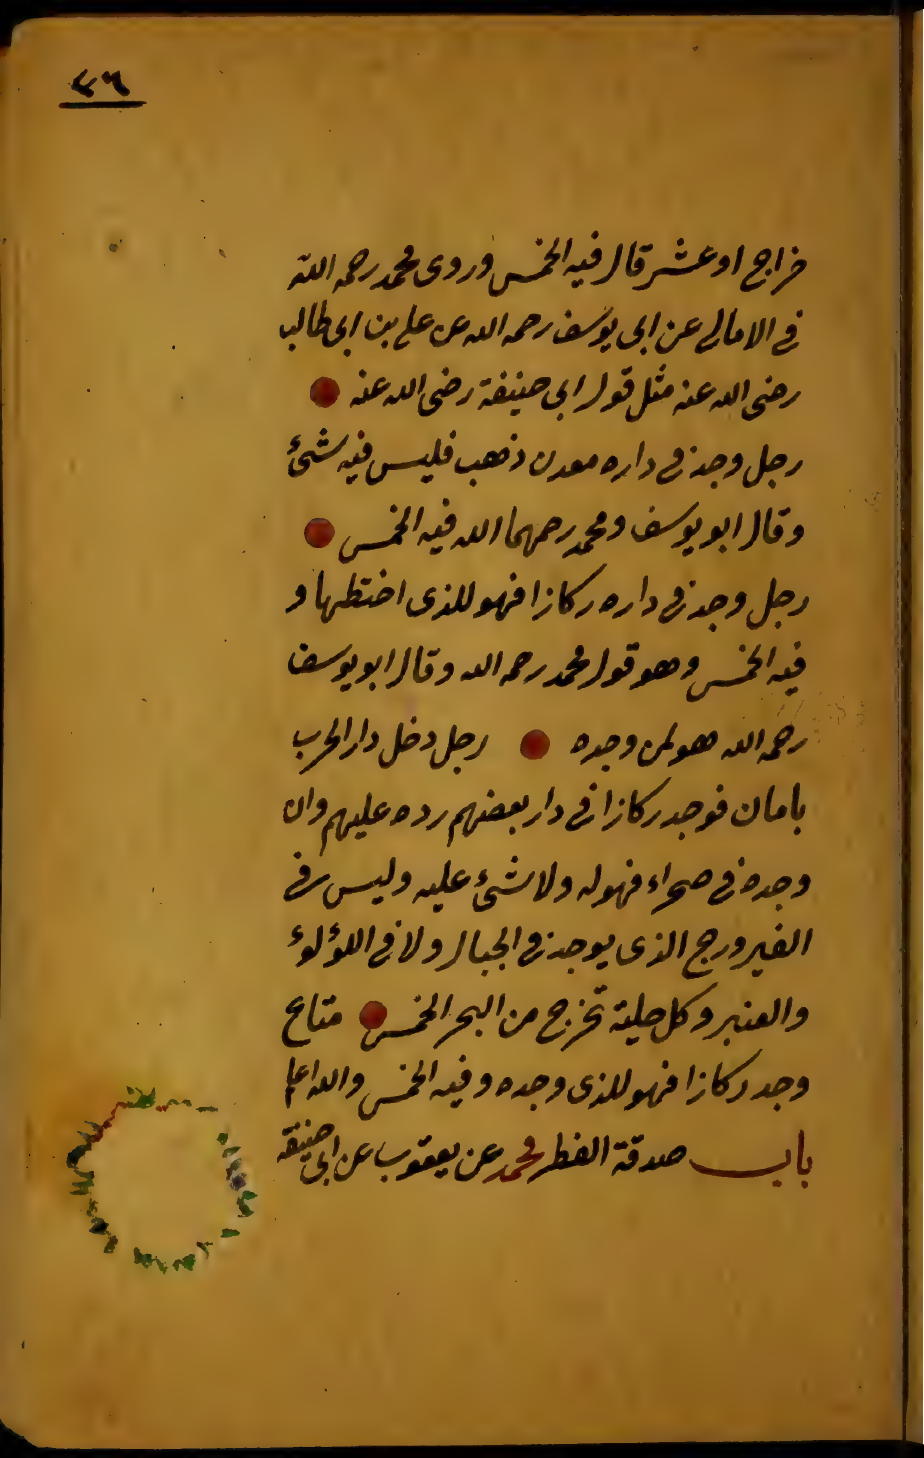 ٤٦
خراج او عشر قال فيه الخمس وروى محمد رحمه الله
فى الامالى عن ابى يوسف رحمه الله عن على بن ابى طالب
رضى الله عنه مثل قول ابى حنيفة رضى الله عنه
رجل وجد فى داره معدن ذهب فليس فيه شئ
وقال ابو يوسف ومحمد رحمهما الله فيه الخمس
رجل وجد فى داره ركازا فهو للذى اختطها و
فيه الخمس وهو قول محمد رحمه الله وقال ابو يوسف
رحمه الله هو لمن وجده رجل دخل دار الحرب
بامان فوجد ركازا فى دار بعضهم رده عليهم وان
وجده فى صحراء فهو له ولا شئ عليه وليس فى
الفيروزج الذى يوجد فى الجبال ولا فى اللؤلؤ
والعنبر وكل حلية تخرج من البحر الخمس متاع
وجد ركازا فهو للذى وجده وفيه الخمس والله اعلم
باب صدقة الفطر محمد عن يعقوب عن ابى حنيفة